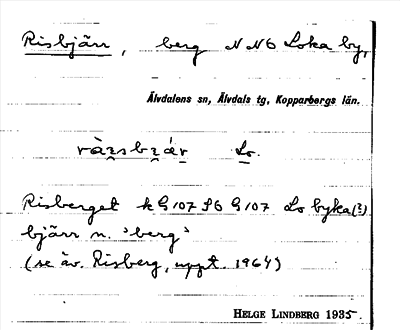 Risbjärr, berg NNO Loka by,
Älvdalens sn, Älvdals tg, Kopparbergs län.
Lo.
Risberget k G 107 SO G 107 Lo byka(?)
bjärr n. 'berg'
(se äv. Risberg, uppt. 1964)
HELGE LINDBERG 1935.